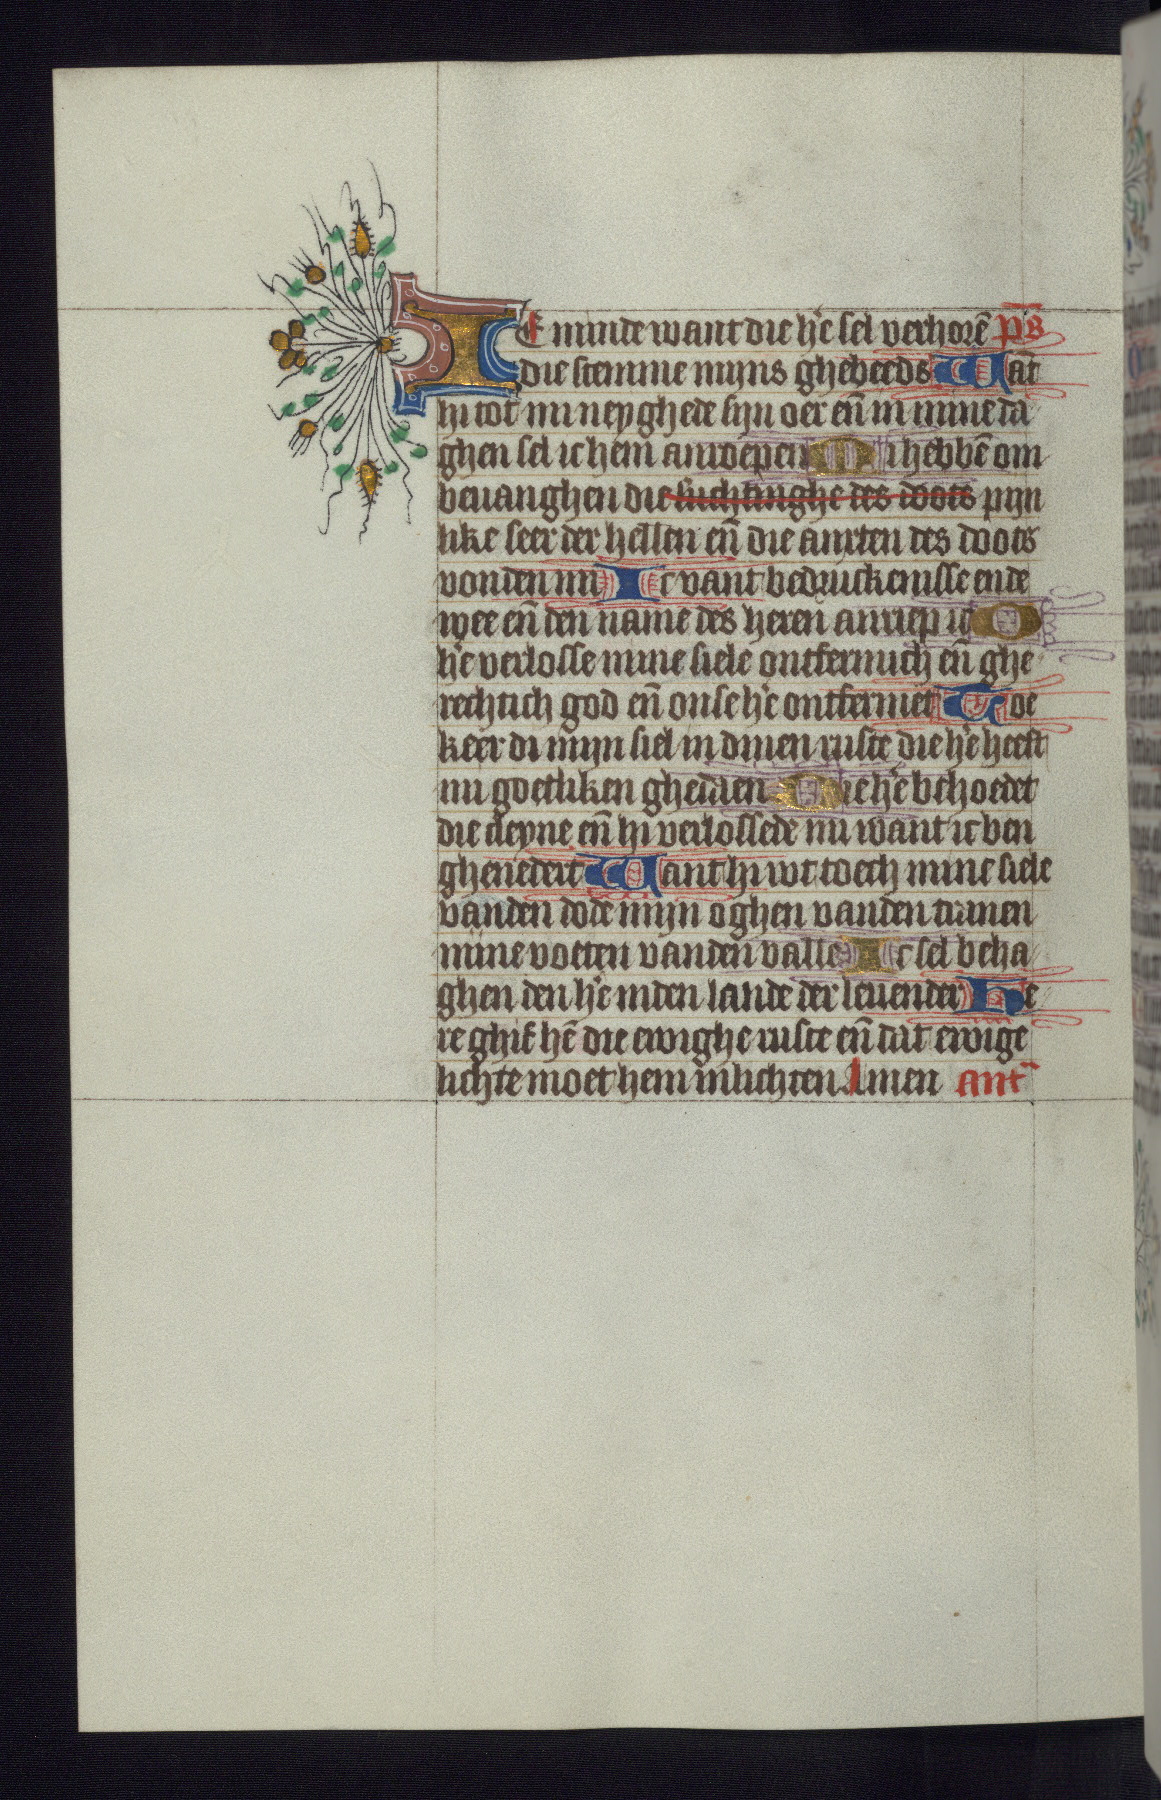 IC minde want die he sel verhorē ps
die stemme mijns ghebeeds Wāt
hi tot mi neyghede sijn oer eñ in mine da
ghen sel ic hem anroepen Mi hebbē om
vevanghen die suchtinghe des doots pijn
like seer der hellen eñ die anxten des doots
vonden mi Ic vant bedruckenisse ende
wee eñ den name des heren anriep ic O
he verlosse mine siele ontfermich eñ ghe
rechtich god eñ onse he ontfermet Toe
keer di mijn siel in dinen ruste die he heeft
mi goetliken ghedaen Die he behoedet
die cleyne eñ hi verlossede mi want ic ben
ghenedert Want hi wt toech mine siele
vanden dode mijn oghen vanden tranen
mine voeten vanden valle Ic sel beha
ghen den he inden lande der levender He
re ghif hē die ewighe ruste eñ dat ewige
lichte moet hem inlichten Amen ant